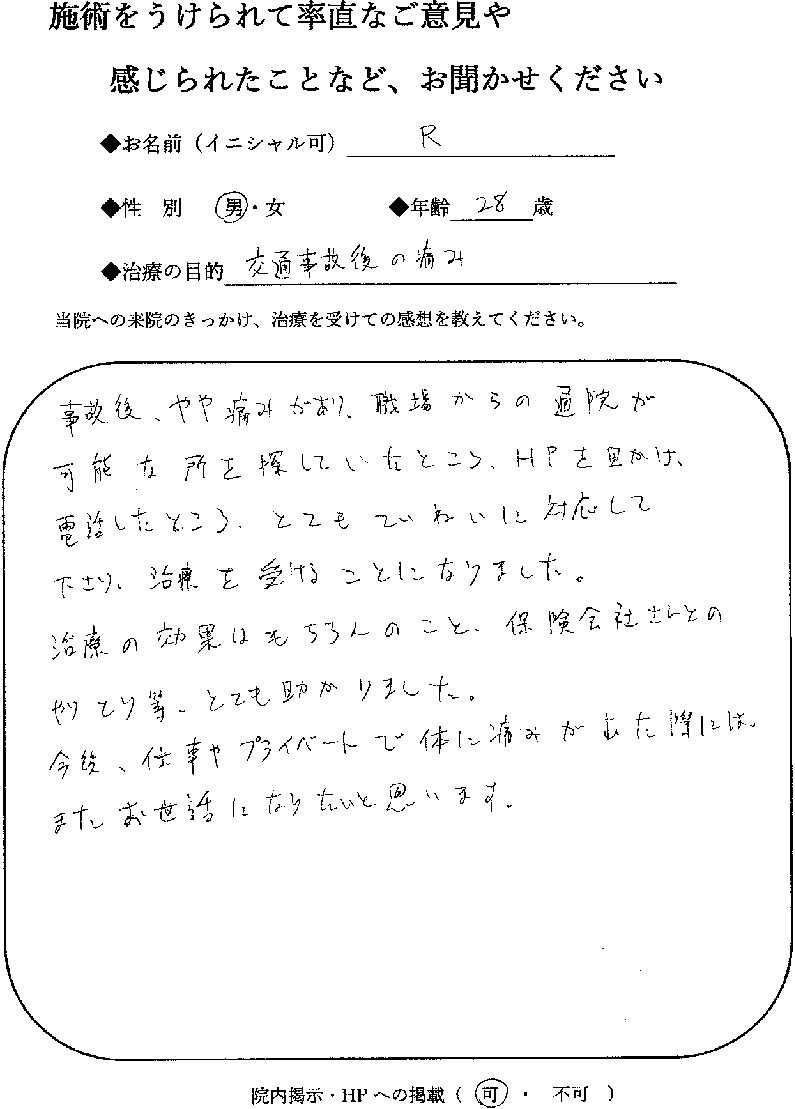 施術をうけられて率直なご意見や
感じられたことなど、お聞かせください
◆お名前（イニシャル可） R
◆性 別 男・女 ◆年齢 28 歳
◆治療の目的 交通事故後の痛み
当院への来院のきっかけ、治療を受けての感想を教えてください。
事故後、やや痛みがあり、職場からの通院が
可能な所を探していたところ、HPを見かけ、
電話したところ、とてもていねいに対応して
下さり、治療を受けることになりました。
治療の効果はもちろんのこと、保険会社さんとの
やりとり等、とても助かりました。
今後、仕事やプライベートで体に痛みが出た際には、
またお世話になりたいと思います。
院内掲示・HPへの掲載（ 可 ・ 不可 ）